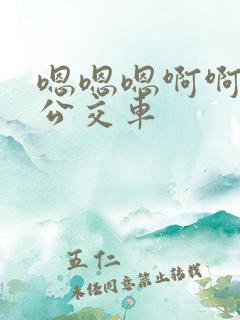 嗯嗯嗯啊啊
公交车
五仁
未经同意禁止转载